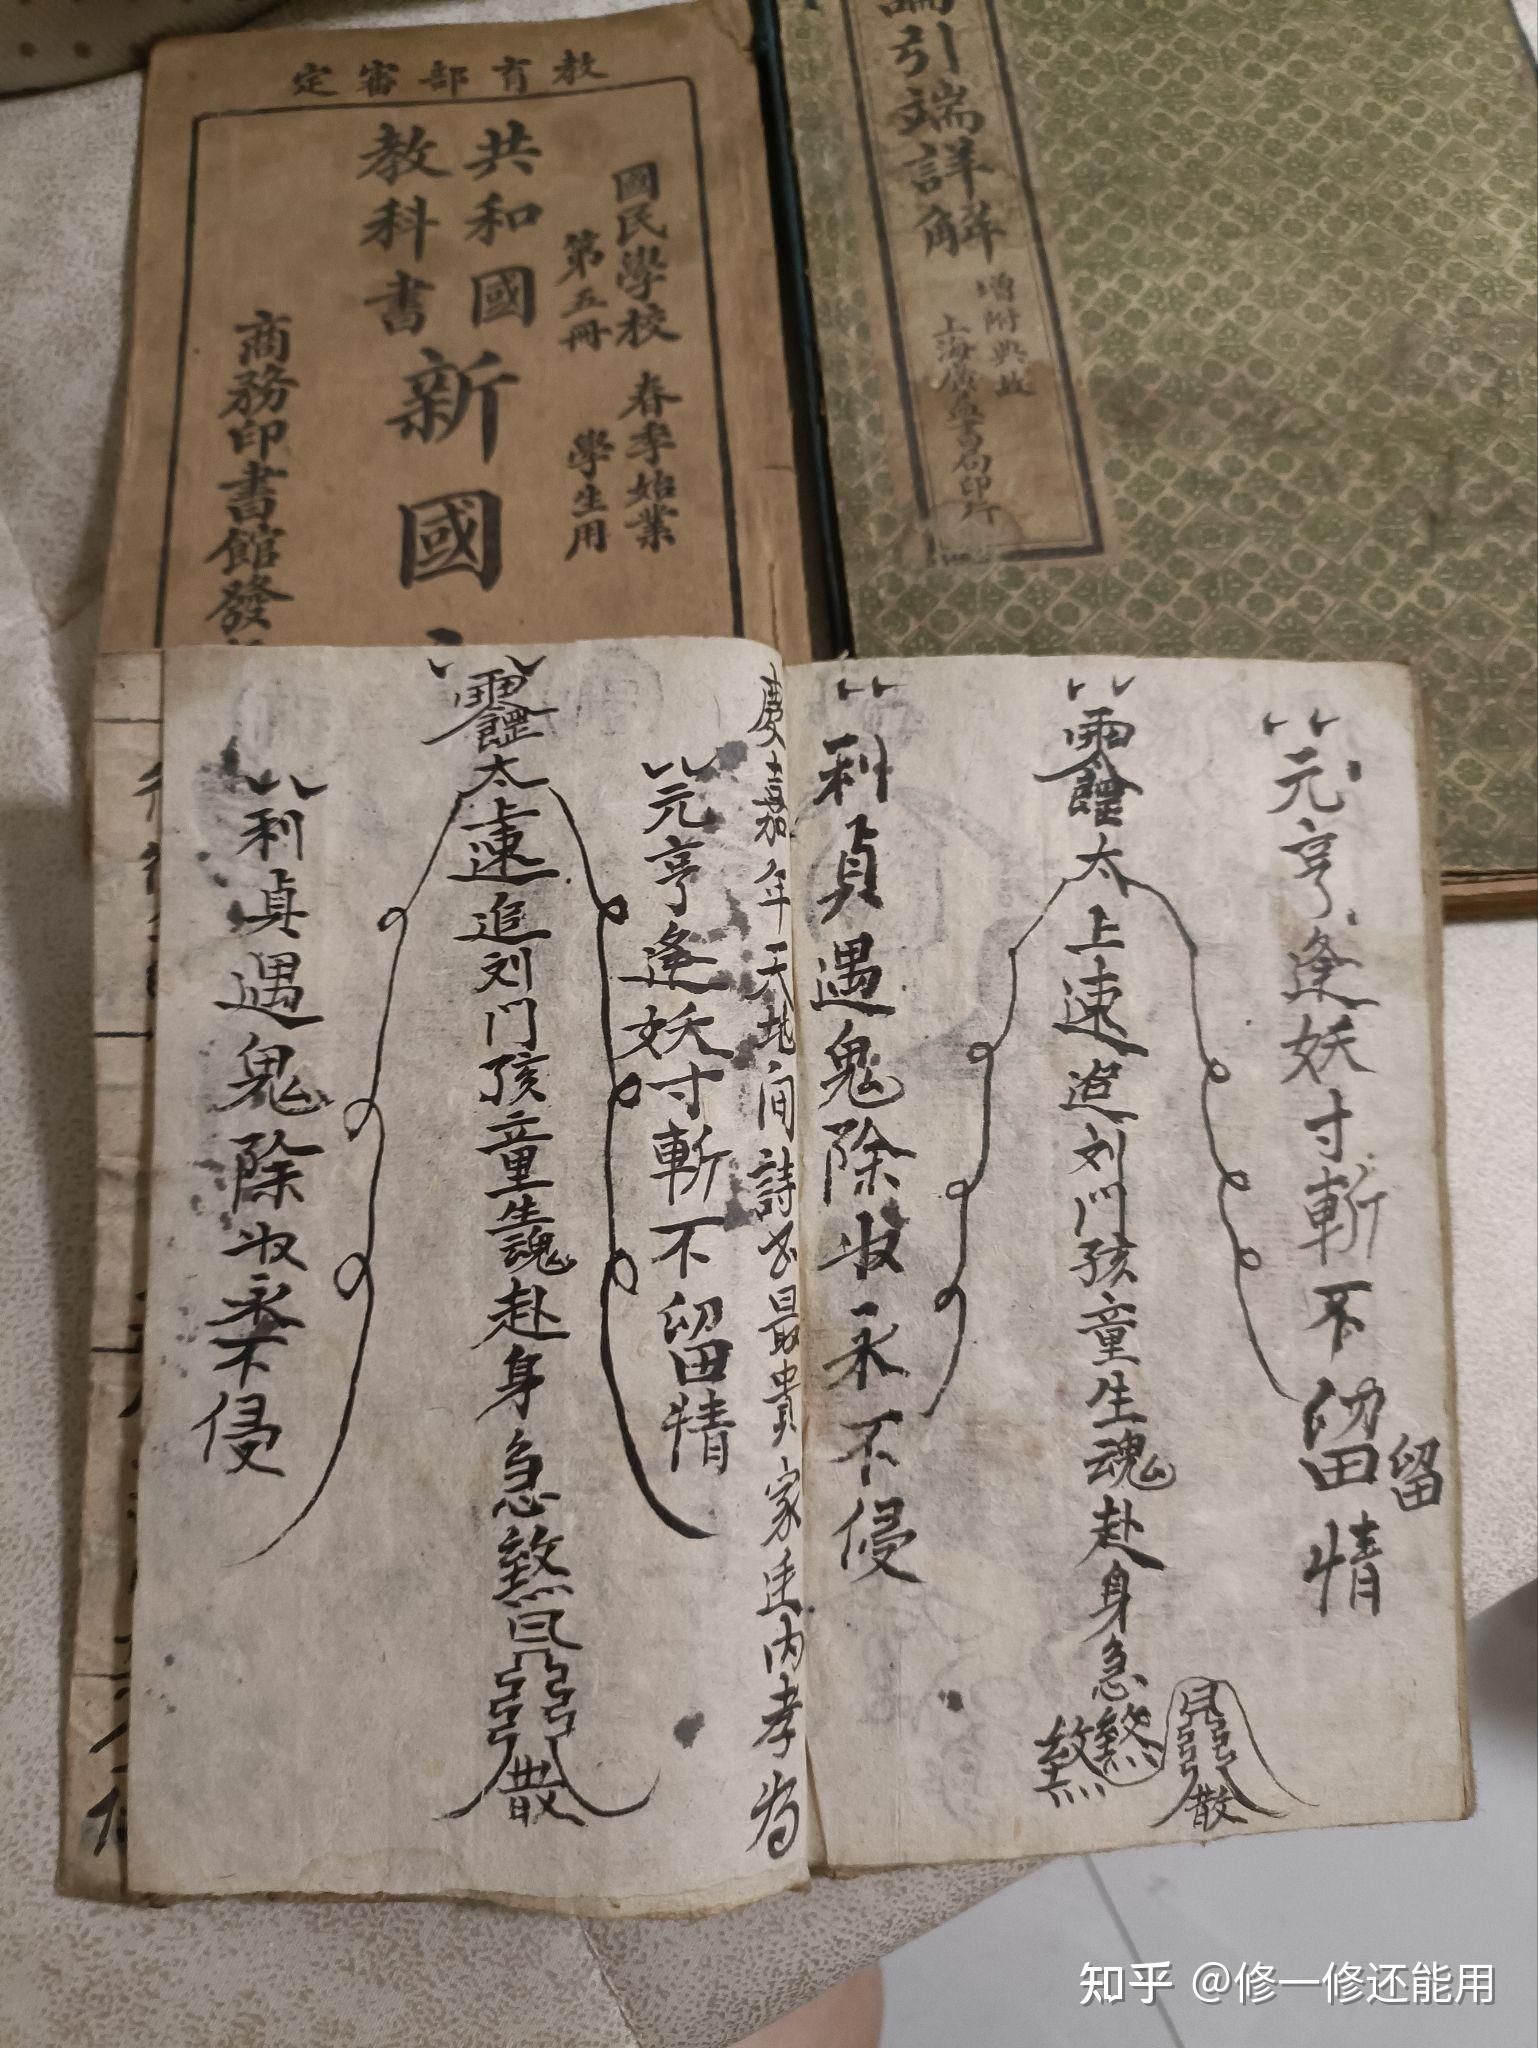 教育部審定
國民學校 春季始業
第五冊 學生用
共和國
教科書
新國
商務印書館發
論引端詳解
增附典故
上海廣益書局印行
元亨逢妖寸斬不留情
留
太上速追刘門孩童生魂赴身急煞
煞
散
利貞遇鬼除收永不侵
年天地间詩書最貴家廷内孝为
元亨逢妖寸斬不留情
太上速追刘門孩童生魂赴身急煞
散
利貞遇鬼除收永不侵
知乎 @修一修还能用